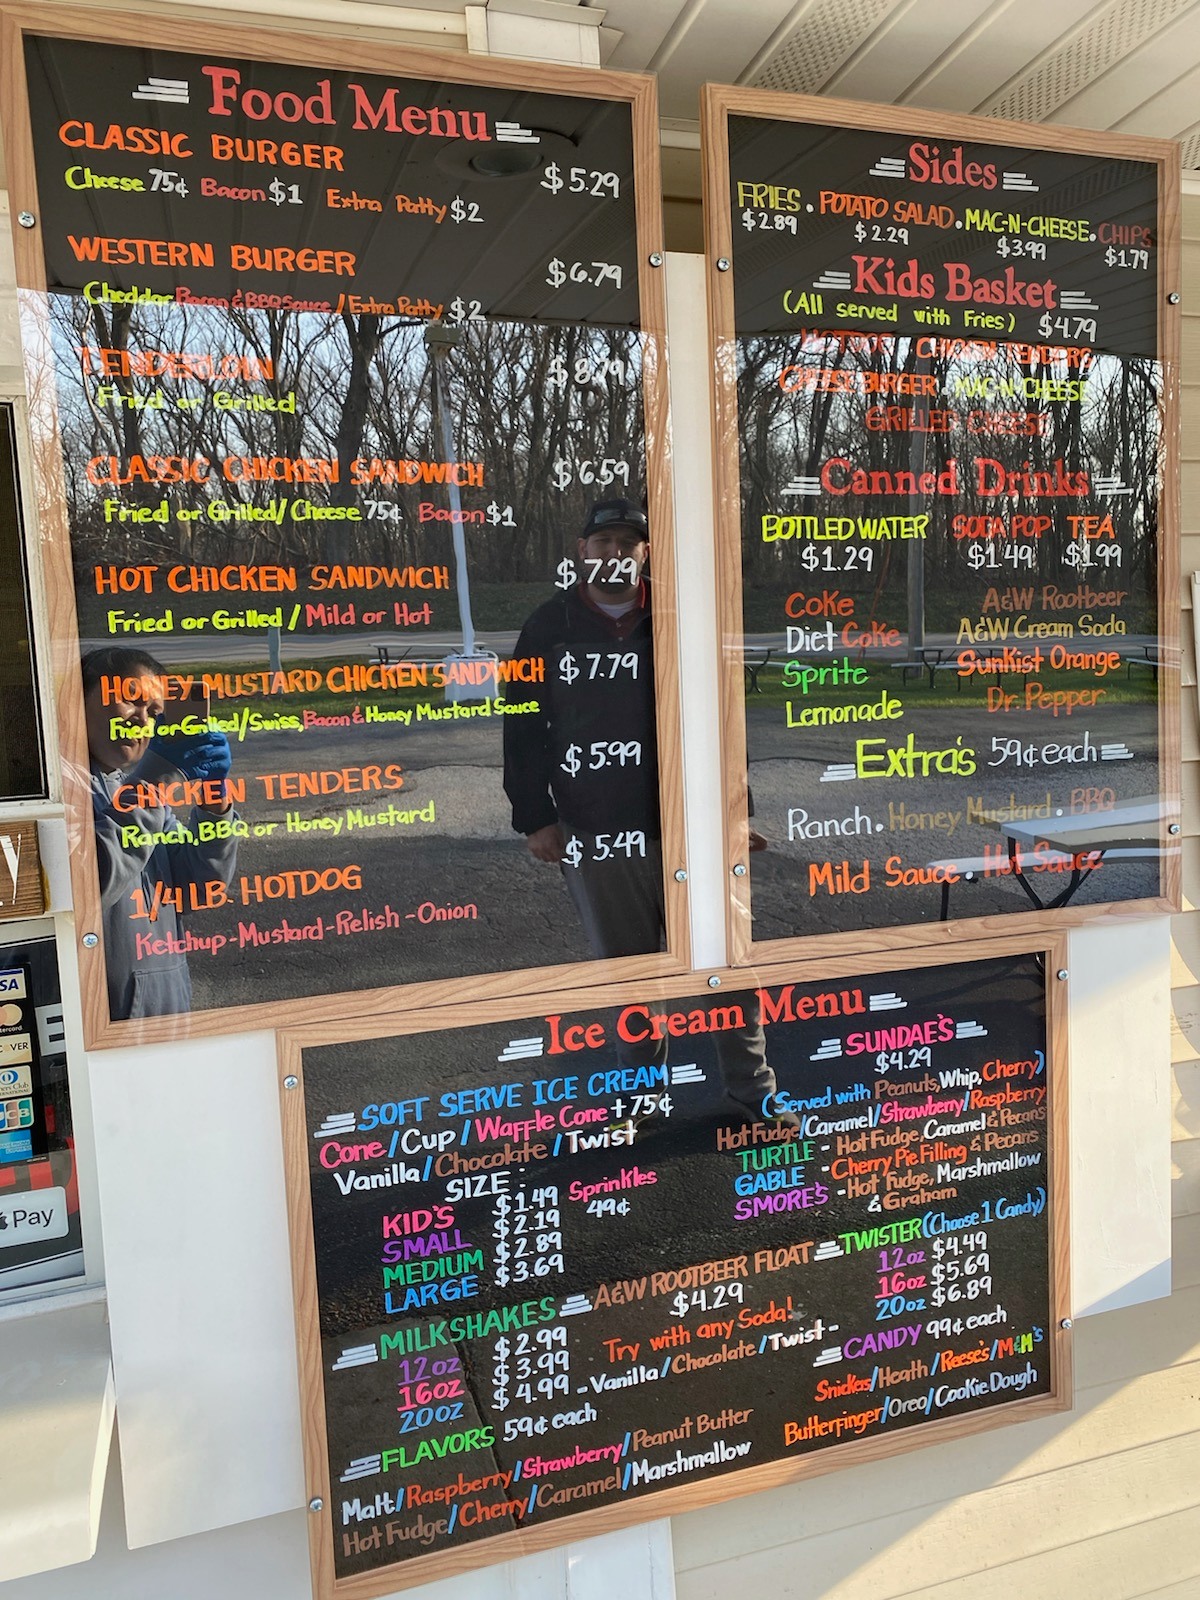 Food Menu
CLASSIC BURGER $5.29
Cheese 75¢ Bacon $1 Extra Patty $2
WESTERN BURGER $6.79
Cheddar, Bacon & BBQ Sauce / Extra Patty $2
TENDERLOIN $8.79
Fried or Grilled
CLASSIC CHICKEN SANDWICH $6.59
Fried or Grilled/Cheese 75¢ Bacon $1
HOT CHICKEN SANDWICH $7.29
Fried or Grilled / Mild or Hot
HONEY MUSTARD CHICKEN SANDWICH $7.79
Fried or Grilled/Swiss, Bacon & Honey Mustard Sauce
CHICKEN TENDERS $5.99
Ranch, BBQ or Honey Mustard
1/4 LB. HOTDOG $5.49
Ketchup-Mustard-Relish-Onion
Sides
FRIES . POTATO SALAD . MAC-N-CHEESE . CHIPS
$2.89 $2.29 $3.99 $1.79
Kids Basket
(All served with Fries) $4.79
HOTDOG CHICKEN TENDERS
CHEESE BURGER MAC-N-CHEESE
GRILLED CHEESE
Canned Drinks
BOTTLED WATER SODA POP TEA
$1.29 $1.49 $1.99
Coke A&W Rootbeer
Diet Coke A&W Cream Soda
Sprite Sunkist Orange
Lemonade Dr. Pepper
Extra's 59¢ each
Ranch . Honey Mustard . BBQ
Mild Sauce . Hot Sauce
Ice Cream Menu
SOFT SERVE ICE CREAM
Cone/Cup/Waffle Cone +75¢
Vanilla/Chocolate/Twist
SIZE:
KID'S $1.49
SMALL $2.19
MEDIUM $2.89
LARGE $3.69
Sprinkles
49¢
MILKSHAKES
12oz $2.99
16oz $3.99
20oz $4.99 - Vanilla/Chocolate/Twist -
FLAVORS 59¢ each
Malt/Raspberry/Strawberry/Peanut Butter
Hot Fudge/Cherry/Caramel/Marshmallow
A&W ROOTBEER FLOAT
$4.29
Try with any Soda!
SUNDAE'S
$4.29
(Served with Peanuts, Whip, Cherry)
Hot Fudge/Caramel/Strawberry/Raspberry
TURTLE - Hot Fudge, Caramel & Pecans
GABLE - Cherry Pie Filling & Pecans
SMORE'S - Hot Fudge, Marshmallow
& Graham
TWISTER (Choose 1 Candy)
12oz $4.49
16oz $5.69
20oz $6.89
CANDY 99¢ each
Snickers/Heath/Reese's/M&M's
Butterfinger/Oreo/Cookie Dough
Y
VISA
Pay